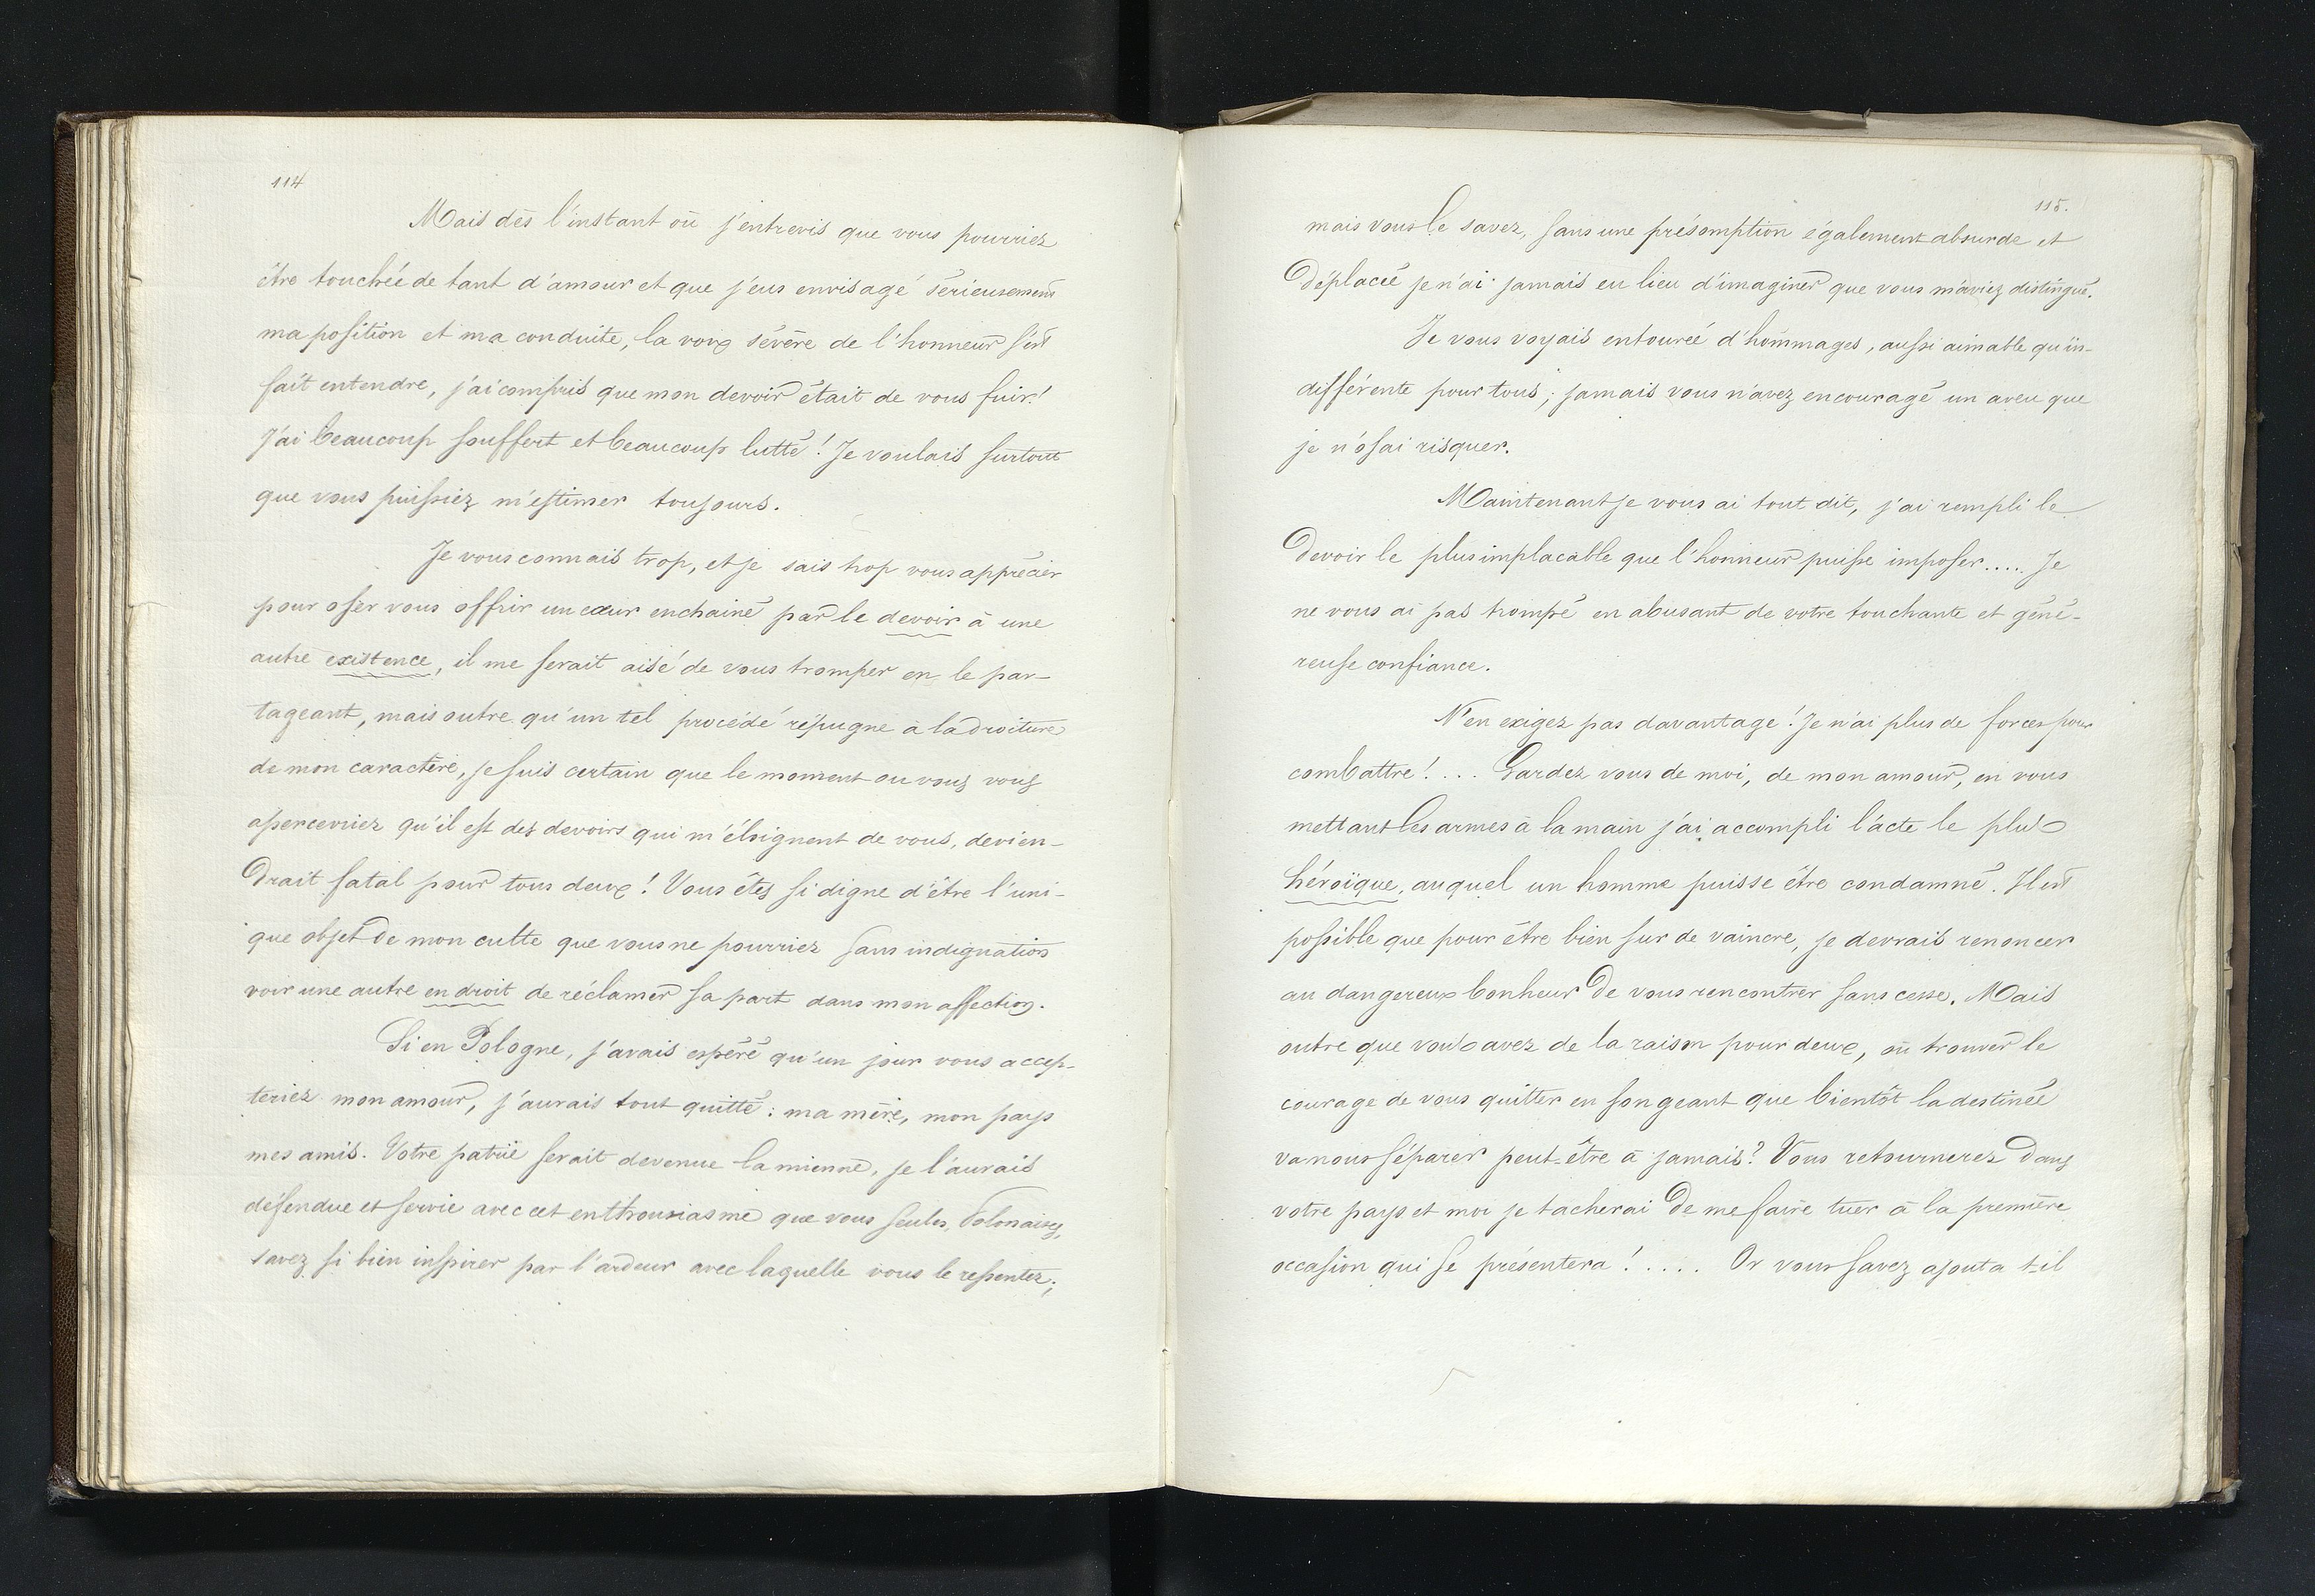 114
Mais dès l'instant où j'entrevis que vous pourriez
être touchée de tant d'amour et que j'eus envisagé sérieusement
ma position et ma conduite, la voix sévère de l'honneur s'est
fait entendre, j'ai compris que mon devoir était de vous fuir!
J'ai beaucoup souffert et beaucoup lutté! Je voulais surtout
que vous puissiez m'estimer toujours.
Je vous connais trop, et je sais trop vous apprécier
pour oser vous offrir un cœur enchainé par le devoir à une
autre existence, il me serait aisé de vous tromper en le par-
tageant, mais outre qu'un tel procédé répugne à la droiture
de mon caractère, je suis certain que le moment ou vous vous
apercevriez qu'il est des devoirs qui m'éloignent de vous, devien-
drait fatal pour tous deux! Vous êtes si digne d'être l'uni-
que objet de mon culte que vous ne pourriez sans indignation
voir une autre en droit de réclamer sa part dans mon affection.
Si en Pologne, j'avais espéré qu'un jour vous accep-
teriez mon amour, j'aurais tout quitté: ma mère, mon pays
mes amis. Votre patrie serait devenue la mienne, je l'aurais
défendue et servie avec cet enthousiasme que vous seules, Polonaises,
savez si bien inspirer par l'ardeur avec laquelle vous le ressentez;
115.
mais vous le savez, sans une présomption également absurde et
déplacée je n'ai jamais eu lieu d'imaginer que vous m'aviez distingué.
Je vous voyais entourée d'hommages, aussi aimable qu'in-
différente pour tous; jamais vous n'avez encouragé un aveu que
je n'osai risquer.
Maintenant je vous ai tout dit, j'ai rempli le
devoir le plus implacable que l'honneur puisse imposer..... Je
ne vous ai pas trompé en abusant de votre touchante et géné-
reuse confiance.
N'en exigez pas davantage! Je n'ai plus de forces pour
combattre!... Gardez vous de moi, de mon amour, en vous
mettant les armes à la main j'ai accompli l'acte le plus
héroïque, auquel un homme puisse être condamné. Il est
possible que pour être bien sur de vaincre, je devrais renoncer
au dangereux bonheur de vous rencontrer sans cesse. Mais
outre que vous avez de la raison pour deux, où trouver le
courage de vous quitter en songeant que bientôt la destinée
va nous séparer peut-être à jamais? Vous retournerez dans
votre pays et moi je tacherai de me faire tuer à la première
occasion qui se présentera!..... Or vous savez ajouta t-il